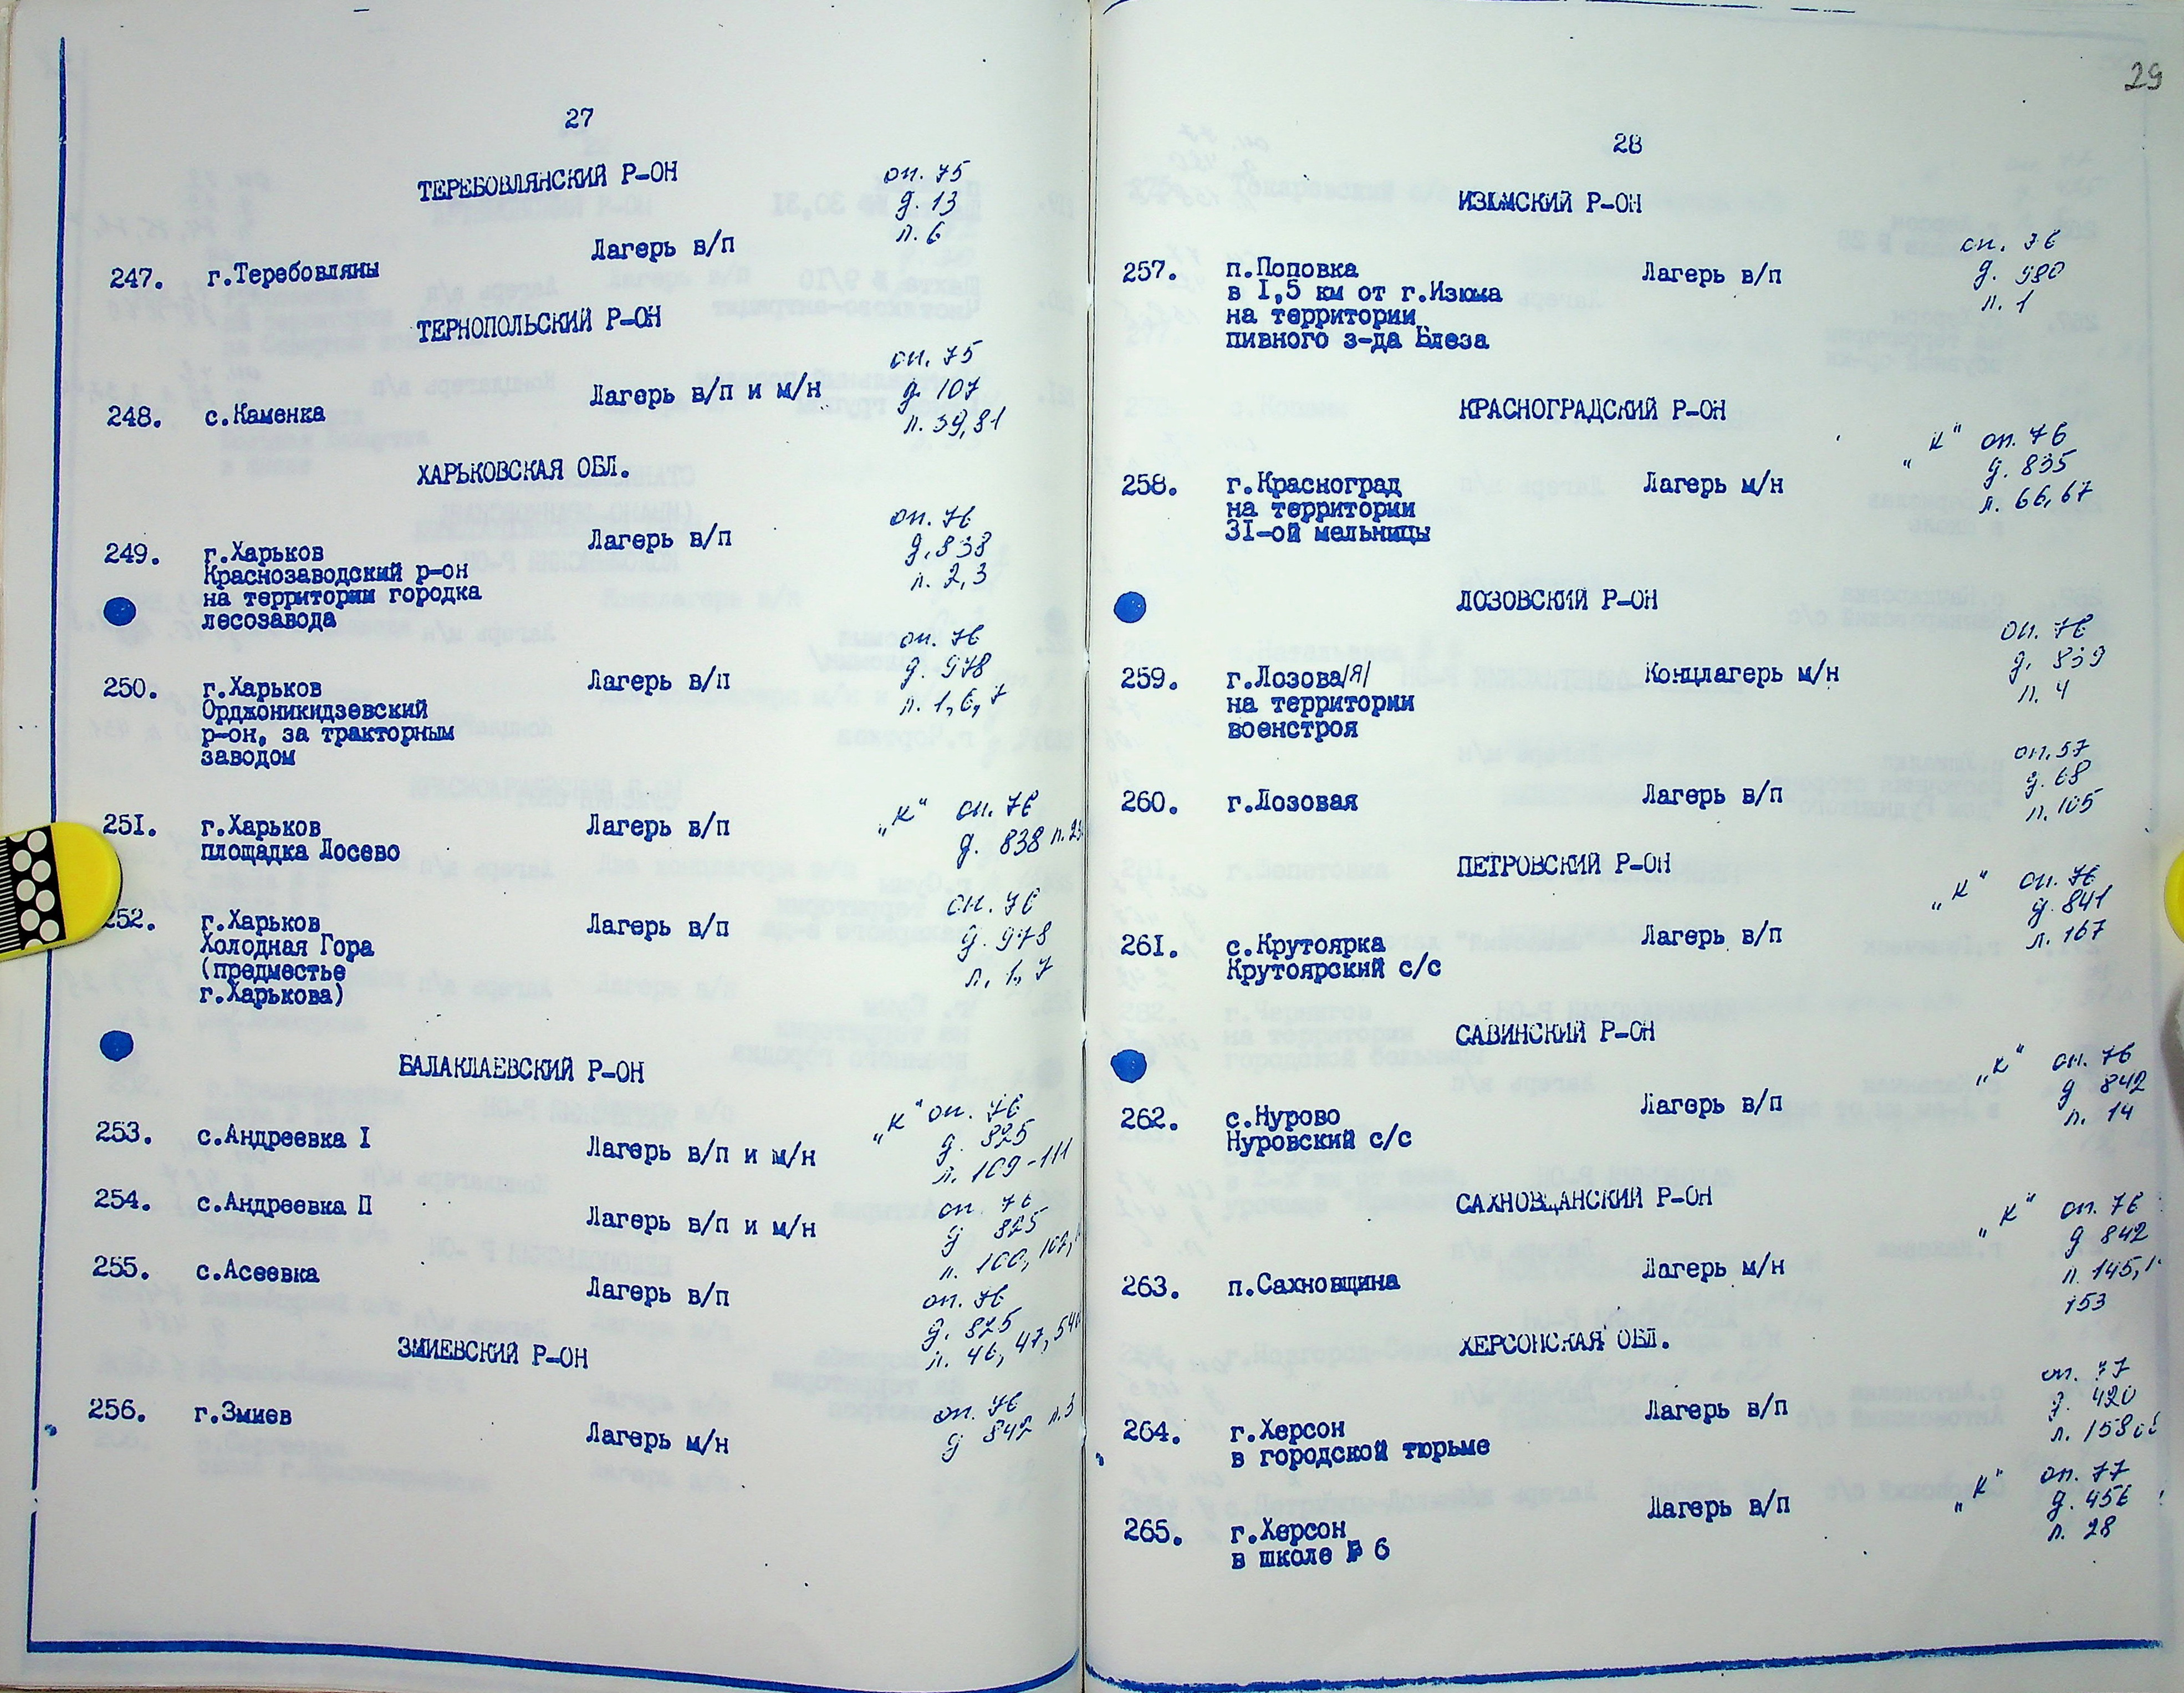 27
ТЕРЕБОВЛЯНСКИЙ Р-ОН
оп. 75
д. 13
л. 6
247. г.Теребовляны Лагерь в/п
ТЕРНОПОЛЬСКИЙ Р-ОН
оп. 75
248. с.Каменка Лагерь в/п и м/н д. 107
л. 39,81
ХАРЬКОВСКАЯ ОБЛ.
оп. 76
249. г.Харьков Лагерь в/п д. 838
Краснозаводский р-он л. 2,3
на территории городка
лесозавода
оп. 76
250. г.Харьков Лагерь в/п д. 978
Орджоникидзевский л. 1,6,7
р-он, за тракторным
заводом
251. г.Харьков Лагерь в/п „К" оп. 76
площадка Лосево д. 838
252. г.Харьков Лагерь в/п оп. 76
Холодная Гора д. 978
(предместье л. 1,7
г.Харькова)
БАЛАКЛАЕВСКИЙ Р-ОН
„К" оп. 76
253. с.Андреевка I Лагерь в/п и м/н д. 825
л. 109-111
254. с.Андреевка П Лагерь в/п и м/н оп. 76
д 825
л. 100,
255. с.Асеевка Лагерь в/п оп. 76
д. 825
л. 46, 47,
ЗМИЕВСКИЙ Р-ОН
256. г.Змиев Лагерь м/н оп. 76
д 847 л.3
29
28
ИЗЮМСКИЙ Р-ОН
оп. 76
257. п.Поповка Лагерь в/п д. 980
в I,5 км от г.Изюма л. 1
на территории
пивного з-да Блеза
КРАСНОГРАДСКИЙ Р-ОН
„К" оп. 76
д. 835
258. г.Красноград Лагерь м/н л. 66,67
на территории
3I-ой мельницы
ЛОЗОВСКИЙ Р-ОН
оп. 76
259. г.Лозова/я/ Концлагерь м/н д. 839
на территории л. 4
военстроя
оп. 57
260. г.Лозовая Лагерь в/п д. 68
л. 105
ПЕТРОВСКИЙ Р-ОН
„К" оп. 76
д. 841
261. с.Крутоярка Лагерь в/п л. 167
Крутоярский с/с
САВИНСКИЙ Р-ОН
„К" оп. 76
д 842
262. с.Нурово Лагерь в/п л. 14
Нуровский с/с
САХНОВЩАНСКИЙ Р-ОН
„К" оп. 76
д 842
263. п.Сахновщина Лагерь м/н л. 145,
153
ХЕРСОНСКАЯ ОБЛ.
оп. 77
264. г.Херсон Лагерь в/п д. 420
в городской тюрьме л. 158
„К" оп. 77
265. г.Херсон Лагерь в/п д. 456
в школе № 6 л. 28